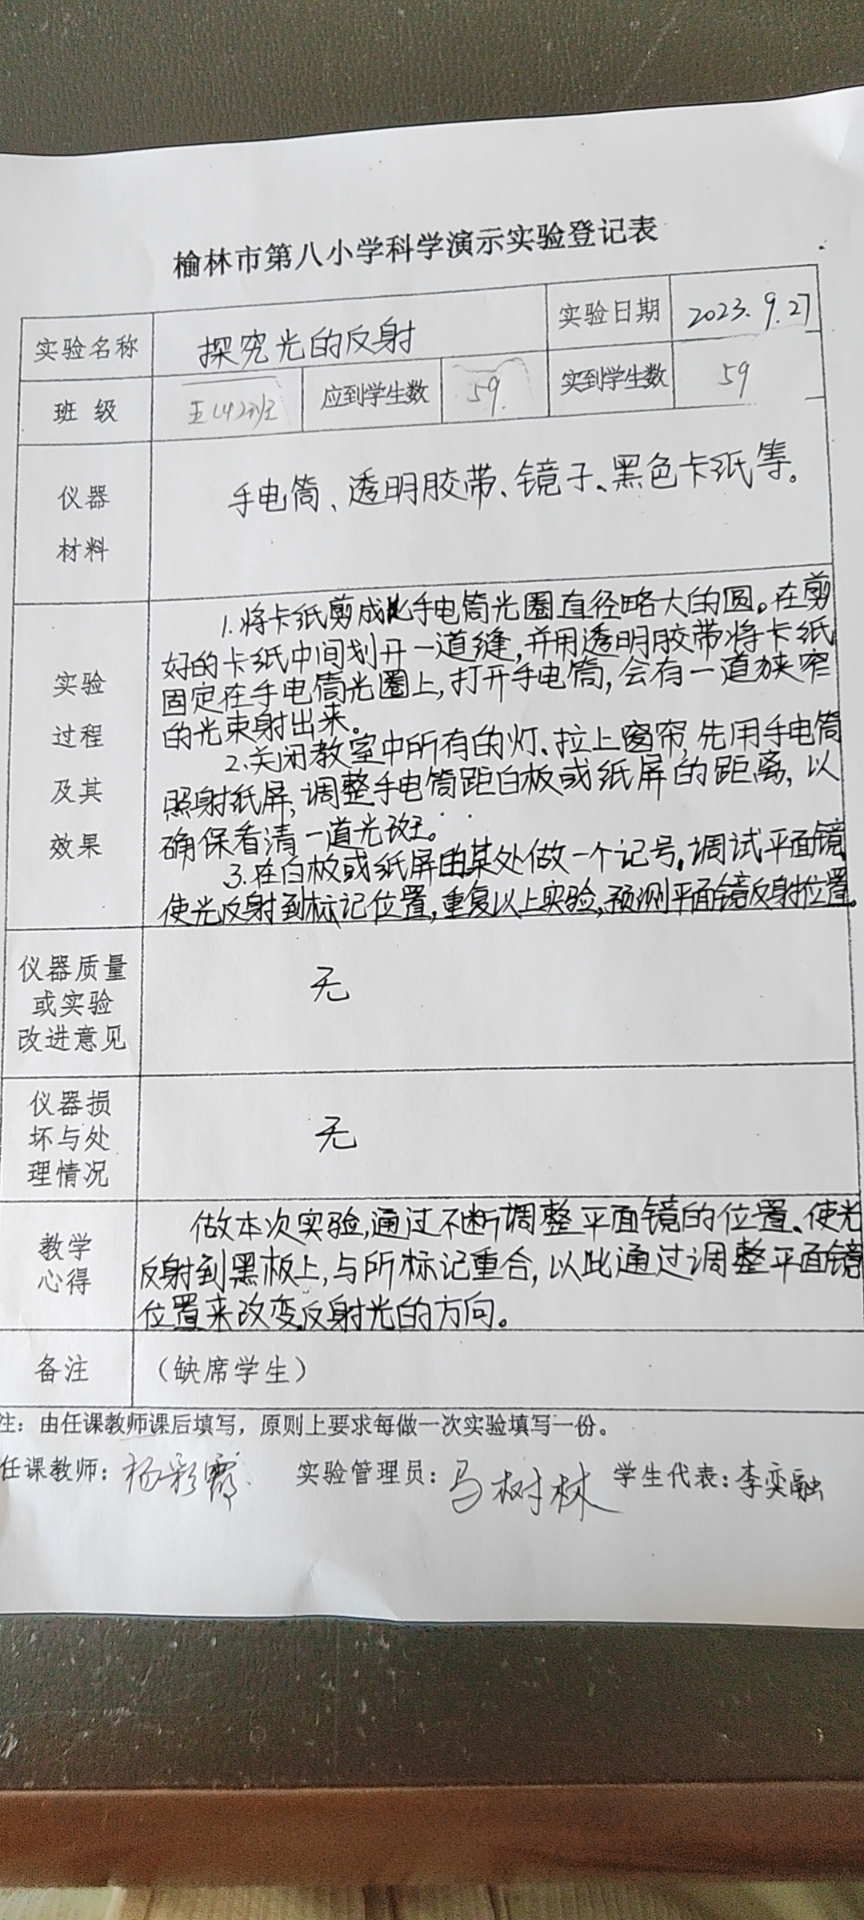 榆林市第八小学科学演示实验登记表
实验名称 探究光的反射 实验日期 2023.9.27
班 级 五(4)班 应到学生数 59 实到学生数 59
仪器
材料
手电筒、透明胶带、镜子、黑色卡纸等。
实验
过程
及其
效果
1.将卡纸剪成比手电筒光圈直径略大的圆。在剪
好的卡纸中间划开一道缝,并用透明胶带将卡纸
固定在手电筒光圈上,打开手电筒,会有一道狭窄
的光束射出来。
2.关闭教室中所有的灯、拉上窗帘,先用手电筒
照射纸屏,调整手电筒距白板或纸屏的距离,以
确保看清一道光斑。
3.在白板或纸屏由某处做一个记号,调试平面镜
使光反射到标记位置,重复以上实验,预测平面镜反射位置。
仪器质量
或实验
改进意见
无
仪器损
坏与处
理情况
无
教学
心得
做本次实验,通过不断调整平面镜的位置、使光
反射到黑板上,与所标记重合,以此通过调整平面镜
位置来改变反射光的方向。
备注 (缺席学生)
注:由任课教师课后填写,原则上要求每做一次实验填写一份。
任课教师:杨彩霞 实验管理员:马树林 学生代表:李奕融